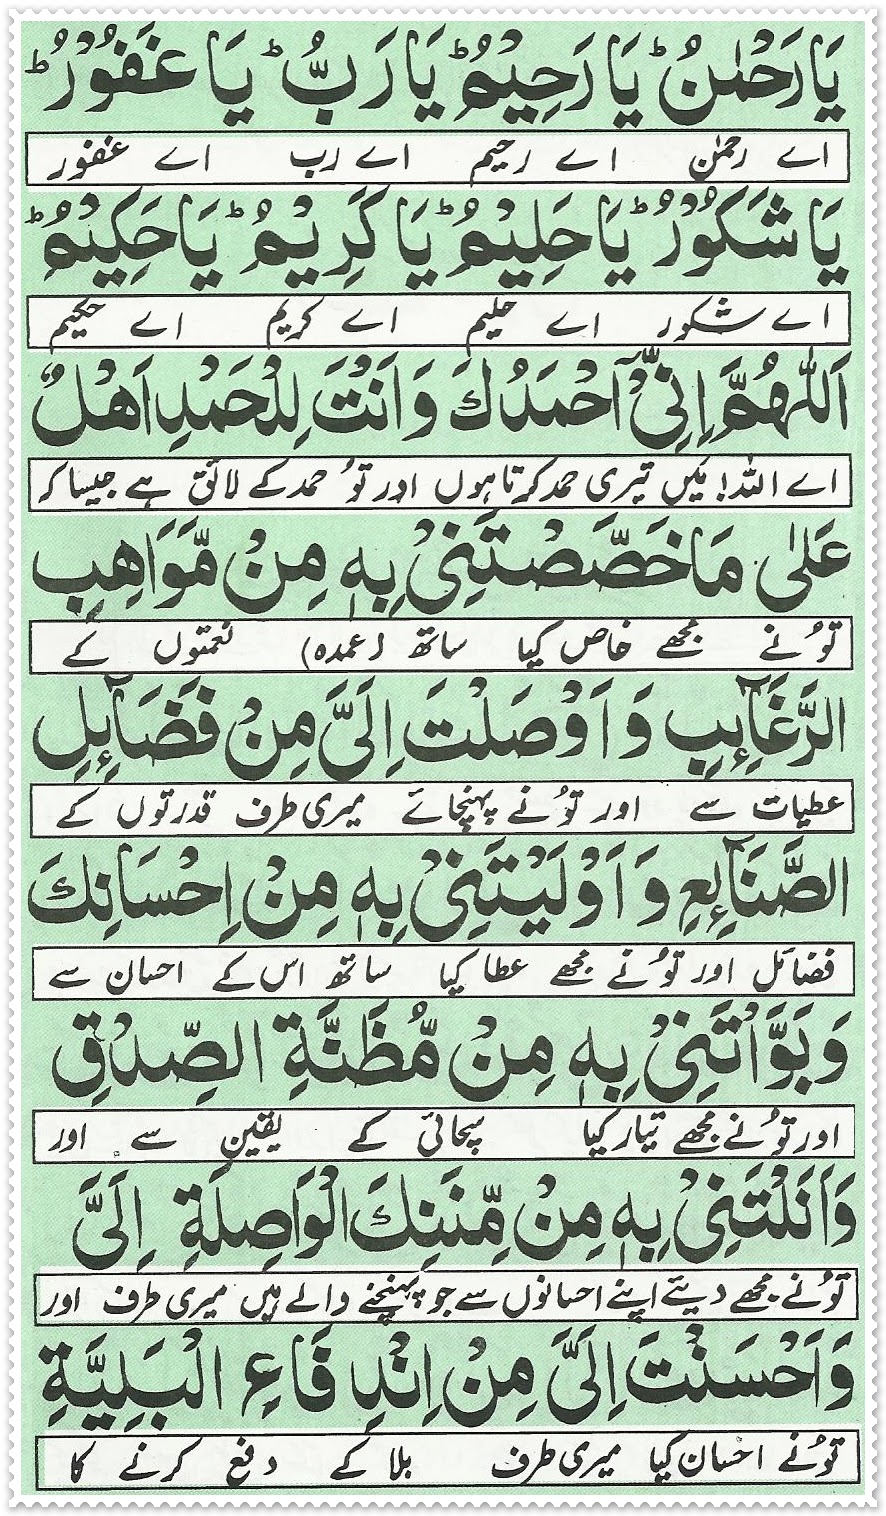 يَا رَحْمٰنُ ؕ يَا رَحِيْمُ ؕ يَا رَبُّ ؕ يَا غَفُوْرُ ؕ
اے رحمٰن اے رحیم اے رب اے غفور
يَا شَكُوْرُ ؕ يَا حَلِيْمُ ؕ يَا كَرِيْمُ ؕ يَا حَكِيْمُ ؕ
اے شکور اے حلیم اے کریم اے حکیم
اَللّٰهُمَّ اِنِّيْۤ اَحْمَدُكَ وَ اَنْتَ لِلْحَمْدِ اَهْلٌ
اے اللہ! میں تیری حمد کرتا ہوں اور توُ حمد کے لائق ہے جیسا کہ
عَلٰى مَا خَصَّصْتَنِيْ بِهٖ مِنْ مَّوَاهِبِ
توُ نے مجھے خاص کیا ساتھ (عمدہ) نعمتوں کے
الرَّغَآئِبِ وَ اَوْصَلْتَ اِلَيَّ مِنْ فَضَآئِلِ
عطیات سے اور توُ نے پہنچائے میری طرف قدرتوں کے
الصَّنَآئِعِ وَ اَوْلَيْتَنِيْ بِهٖ مِنْ اِحْسَانِكَ
فضائل اور توُ نے مجھے عطا کیا ساتھ اس کے احسان سے
وَ بَوَّاْتَنِيْ بِهٖ مِنْ مُّظَنَّةِ الصِّدْقِ
اور توُ نے مجھے تیار کیا سچائی کے یقین سے اور
وَ اَنَلْتَنِيْ بِهٖ مِنْ مِّنَنِكَ الْوَاصِلَةِ اِلَيَّ
توُ نے مجھے دیئے اپنے احسانوں سے جو پہنچنے والے ہیں میری طرف اور
وَ اَحْسَنْتَ اِلَيَّ مِنْ اِنْدِفَاعِ الْبَلِيَّةِ
توُ نے احسان کیا میری طرف بلا کے دفع کرنے کا